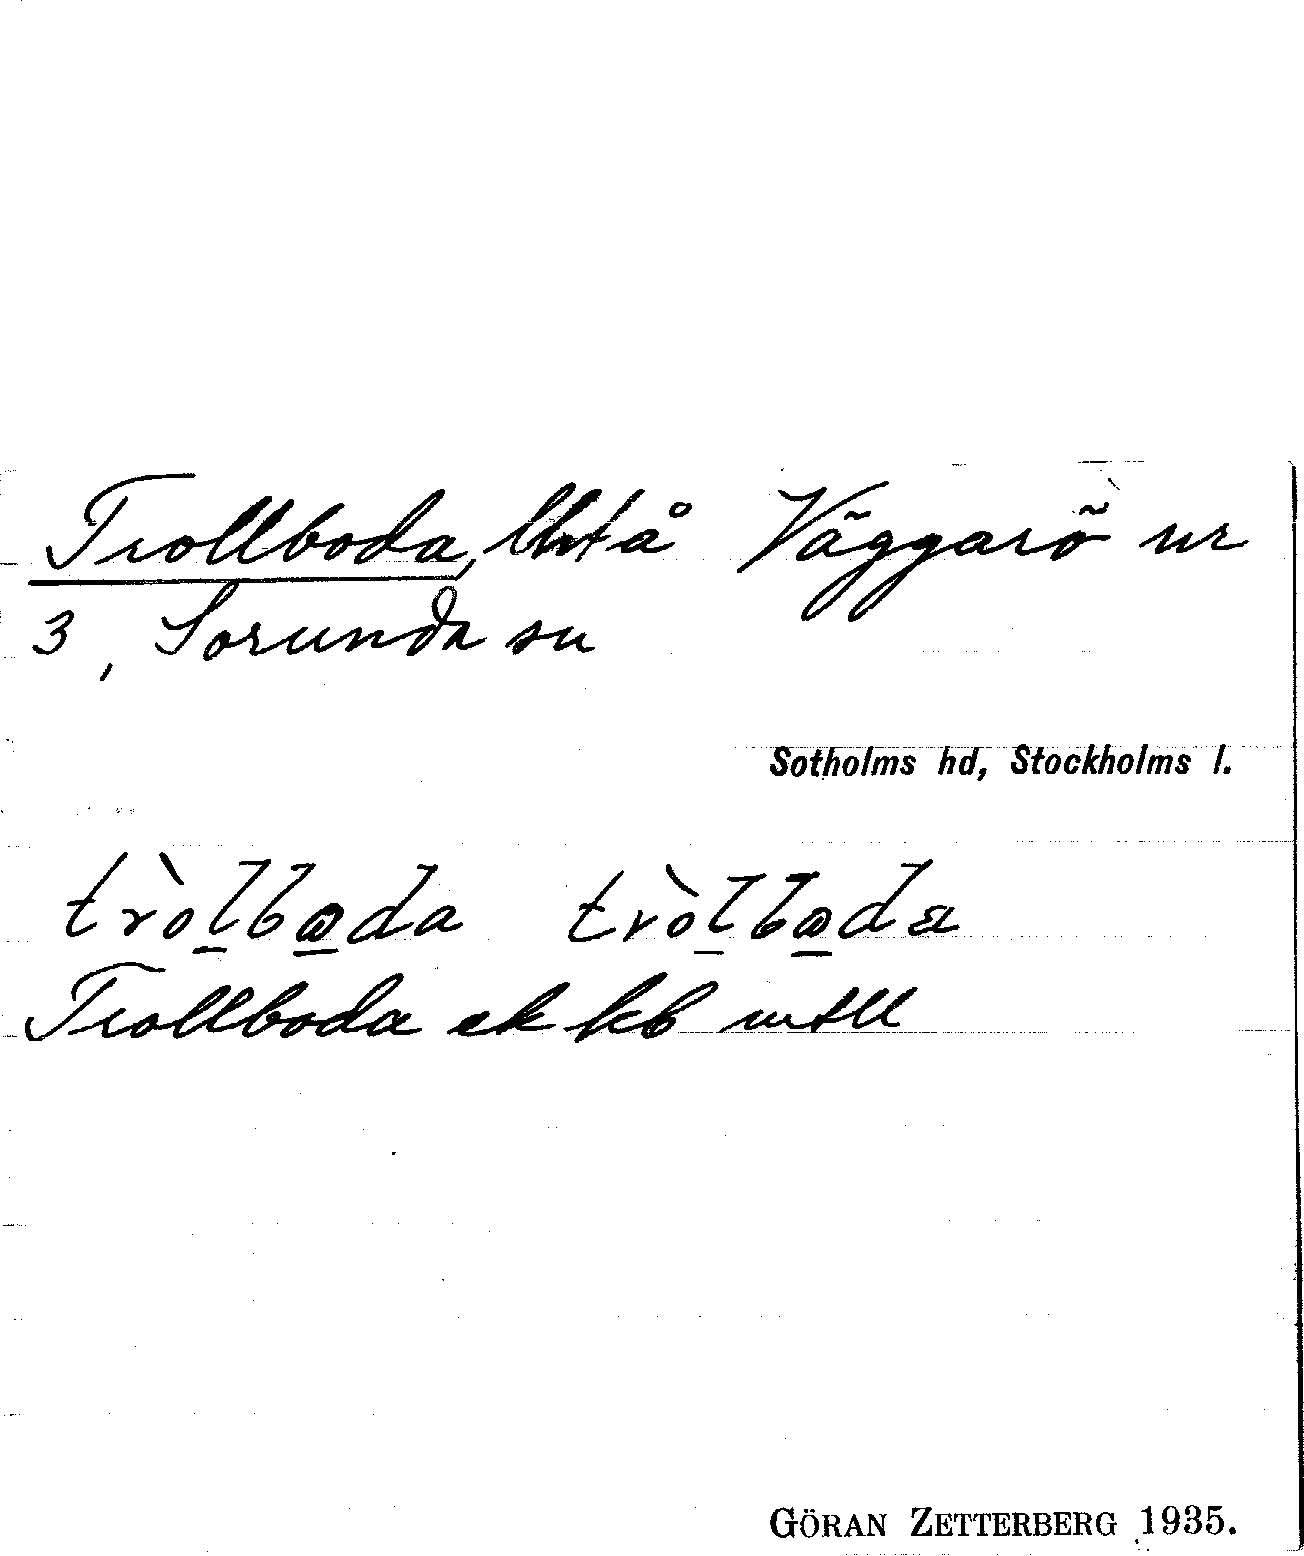 Trollboda, lht å Väggarö nr
3, Sorunda sn
Sotholms hd, Stockholms l.
tròlboda tròlboda
Trollboda ek kb mtll
GÖRAN ZETTERBERG 1935.